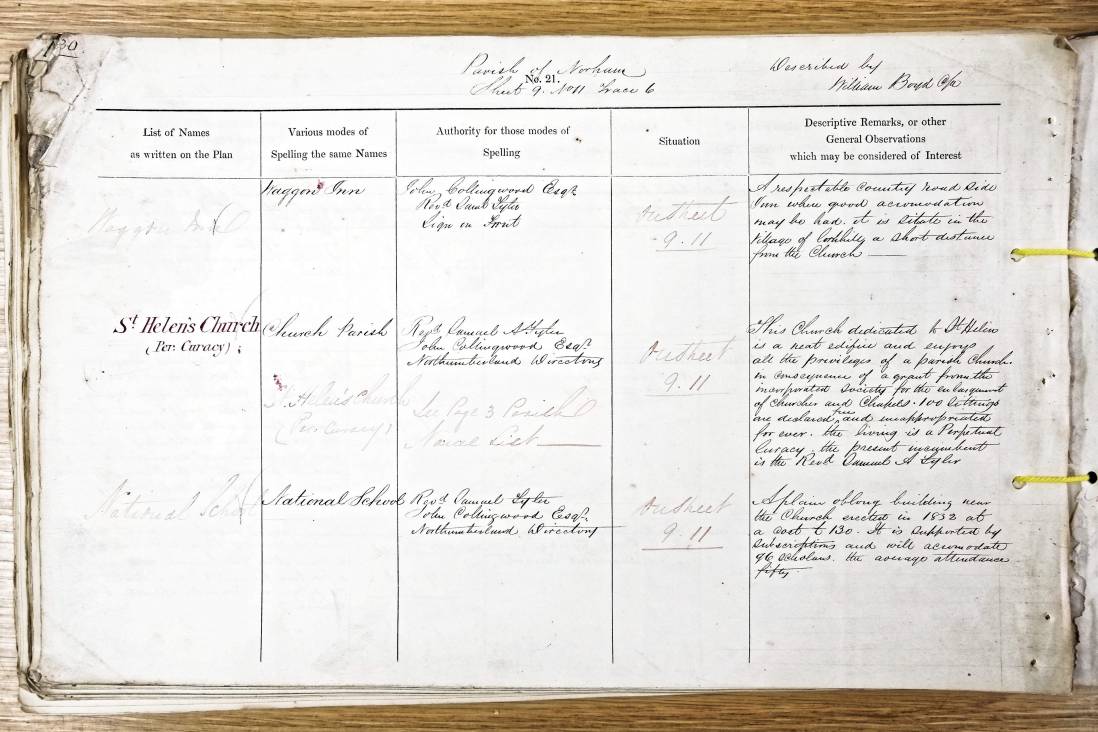 130
Parish of Norham
No. 21.
Sheet 9. No 11 Trace 6
Described by
William Boyd C/a
List of Names
as written on the Plan
Various modes of
Spelling the same Names
Authority for those modes of
Spelling
Situation
Descriptive Remarks, or other
General Observations
which may be considered of Interest
Waggon Inn
Waggon Inn
John Collingwood Esqr.
Revd. Saml Tyler
Sign in Front
On Sheet
9.11
A respectable country road side
Inn where good acomodation
may be had. it is sitate in the
Village of Cornhill, a short distance
from the Church
St. Helen's Church
(Per: Curacy);
Church Parish
Revd. Samuel A. Tyler
John Collingwood Esqr.
Northumberland Directory
St. Helen's Church
(Per: Curacy)
See Page 3 Parish
Name List
On Sheet
9.11
This Church dedicated to St Helen
is a neat edifice and enjoys
all the privileges of a parish Church.
in consequence of a grant from the
incorporated Society for the enlargment
of Churches and Chapels. 100 Sittings
are declared free and unappropriated
for ever. the living is a Perpetual
Curacy, the present incumbent
is the Revd Samuel A Tyler
National School
National School
Revd Samuel Tyler
John Collingwood Esqr.
Northumberland Directory
On Sheet
9.11
A plain oblong building near
the Church erected in 1832 at
a cost £130. It is supported by
subscriptions and will acomodate
96 scholars. the average attendance
fifty.